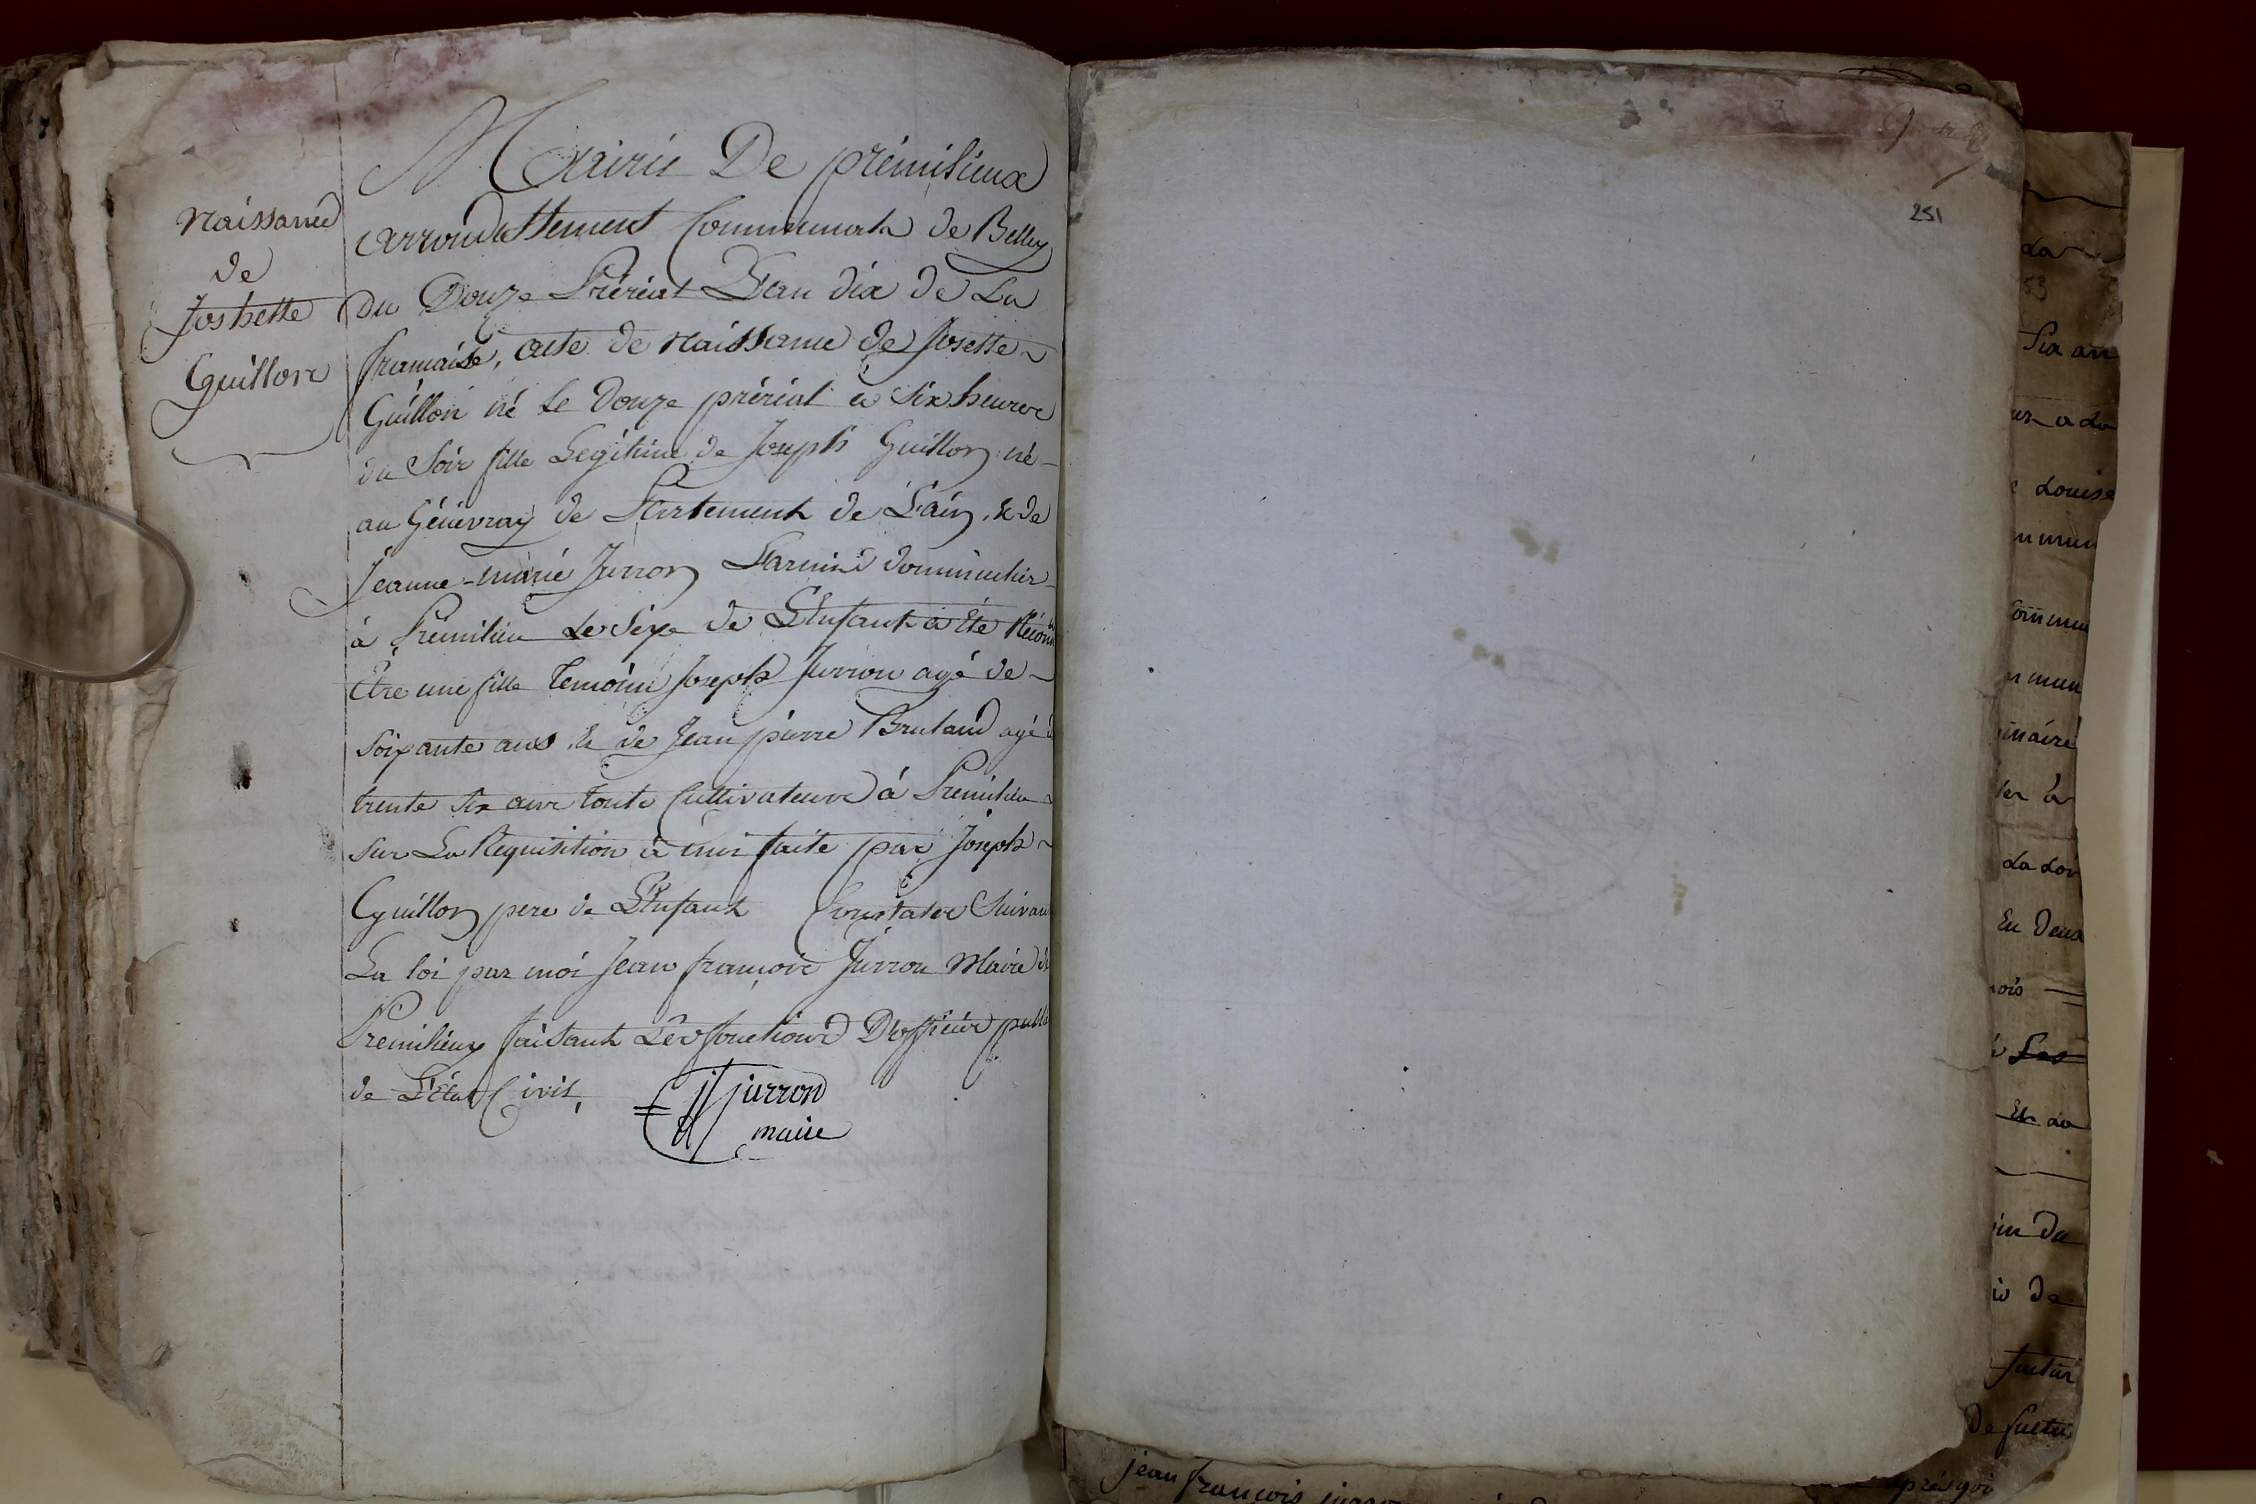 Naissance
de
Joshette
Guillon
Mairie De prémilieux
arrondissement Communal de Belley
du Douze Préreal L'an dix de La
francaise, acte de Naissance de Josette
Guillon né le douze préréal a six heures
du Soir fille Legitime de Joseph Guillon né
au Génevray de Partement de L'ain, & de
Jeanne-marie Jurron
à Prémilieu Le Sexe de L'Enfant a été Réconu
Etre une fille temoins Joseph Jurron agé de
soixante ans & de Jean pierre Brulaud agé d
trente six ans touts Cultivateurs à Premilieu
sur La Requisition à moi faite par Joseph
Guillon pere de L'Enfant Constater Suivan
La loi par moi Jean françois Jurron Maire de
Premilieux faisant Les fonctions D'officier publi
de L'état Civil,
jf jurron
maire
251
La
53
Six an
a La
Louise
mun
Commu
mun
inaire
La Loi
En Deux
mois
Les
Et La
in Du
de
De
jean françois